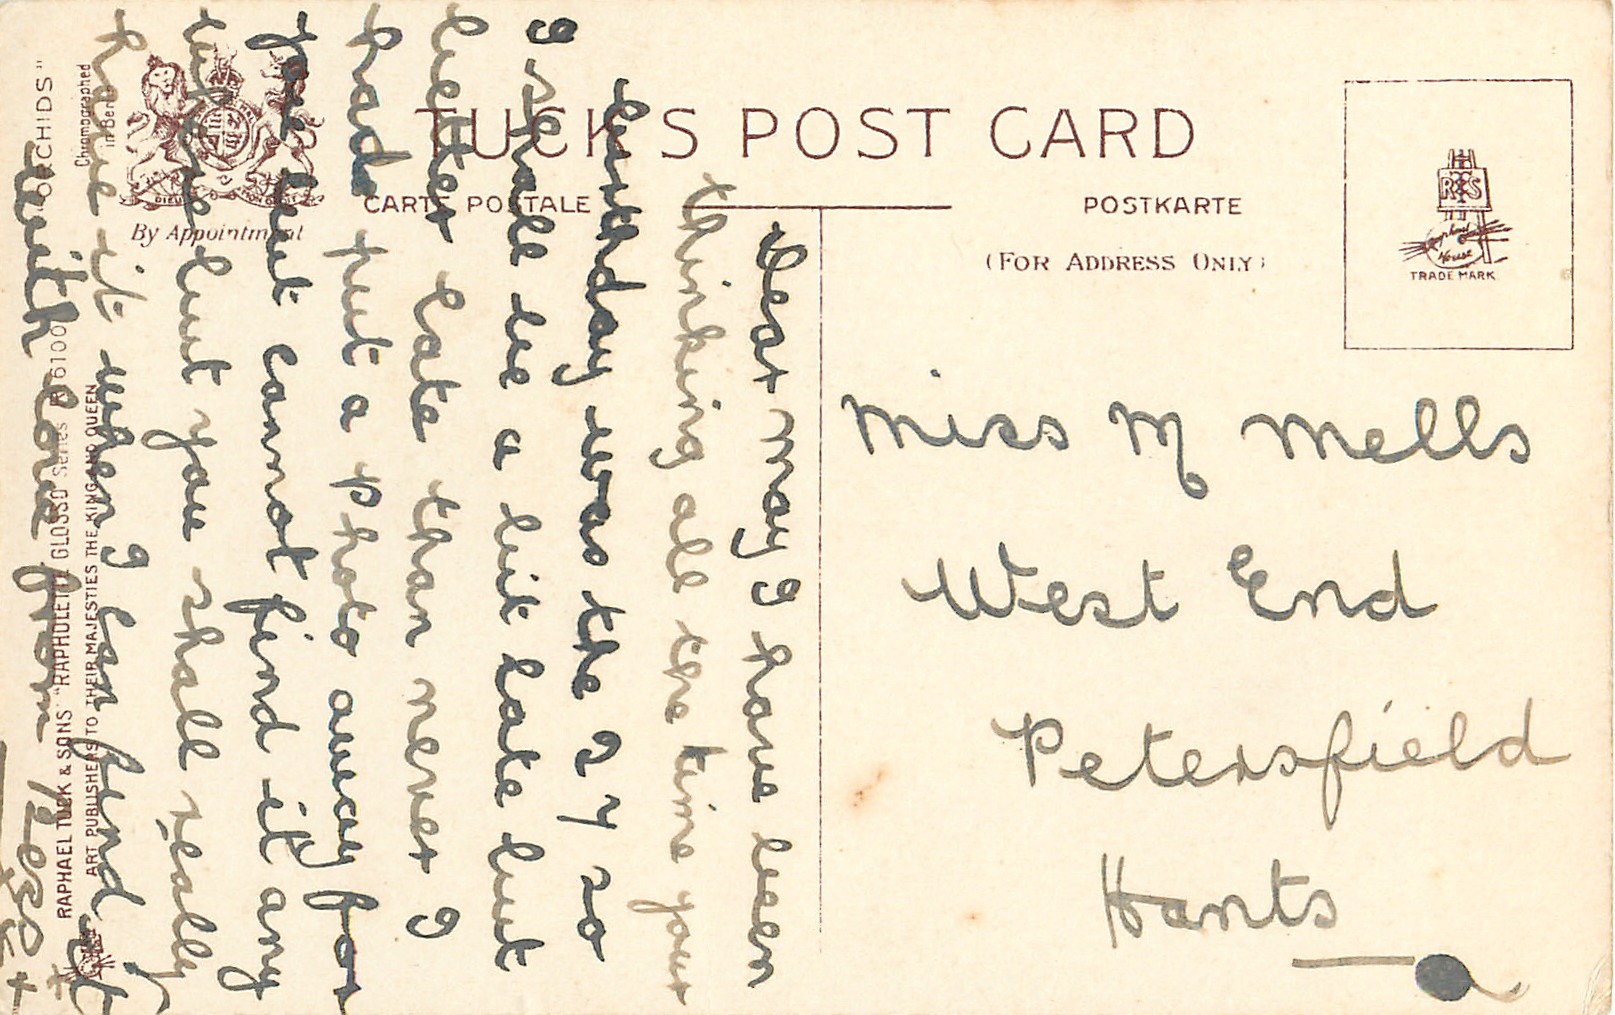 TUCK'S POST CARD
CARTE POSTALE
POSTKARTE
(FOR ADDRESS ONLY)
By Appointment
DIEU ET MON DROIT
R & S
Raphael
House
TRADE MARK
Miss M Mells
West End
Petersfield
Hants
Dear may I have been
thinking all the time your
birthday was the 27 so
I shall be a bit late but
better late than never I
had put a photo away for
you but cannot find it any
where but you shall really
have it when I can find it
with love from Bess
RAPHAEL TUCK & SONS' "RAPHOLETTE" GLOSSO Series 6100
"ORCHIDS"
ART PUBLISHERS TO THEIR MAJESTIES THE KING AND QUEEN
Chromographed
in Berlin